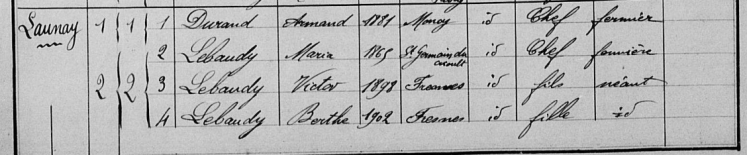 Launay 1 1 1 Durand Armand 1881 Moncy id Chef fermier
2 Lebaudy Maria 1865 St Germain du id Chef fermière
2 2 3 Lebaudy Victor 1898 Fresnes id fils néant
4 Lebaudy Berthe 1902 Fresnes id fille id